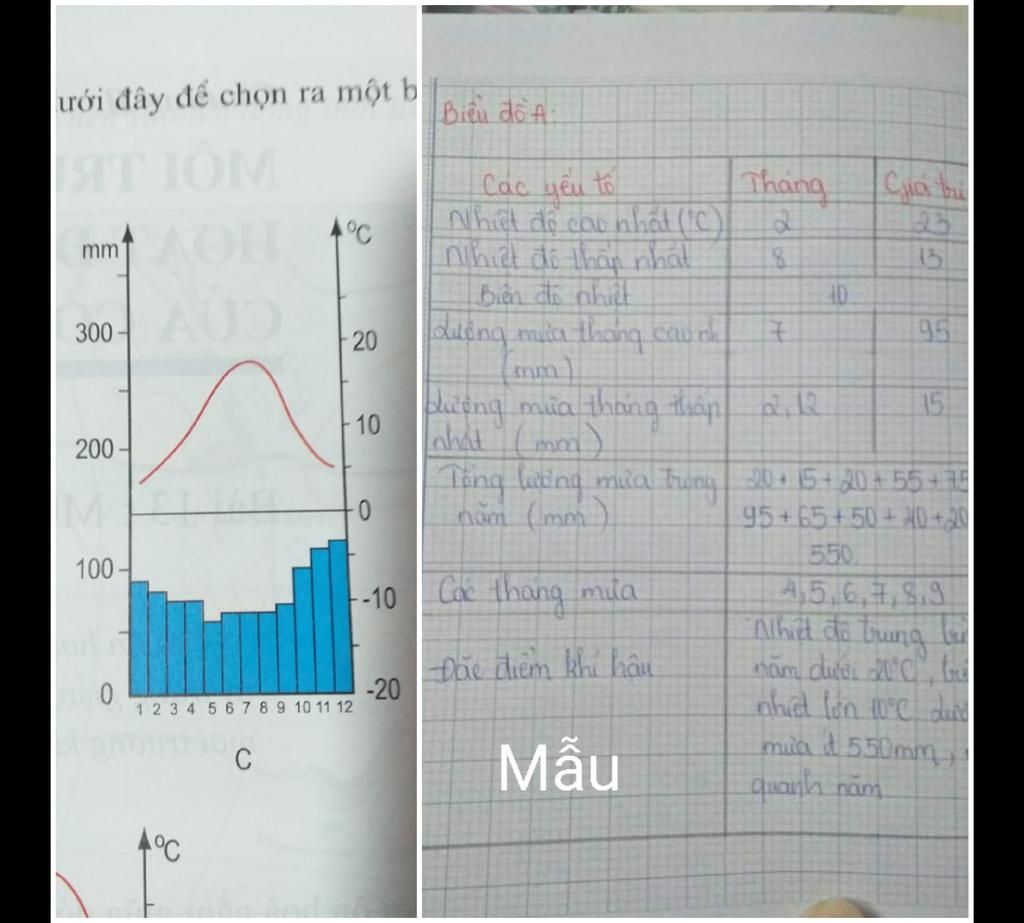 ưới đây để chọn ra một b
mm
°C
300
20
200
10
0
100
-10
0
-20
1 2 3 4 5 6 7 8 9 10 11 12
C
°C
Biểu đồ A:
Các yếu tố Tháng Giá trị
Nhiệt độ cao nhất (°C) 2 23
Nhiệt độ thấp nhất 8 13
Biên độ nhiệt 10
lượng mưa tháng cao nh 7 95
(mm)
lượng mưa tháng thấp 2,12 15
nhất (mm)
Tổng lượng mưa trong 20+15+20+55+75
năm (mm) 95+65+50+40+20
550
Các tháng mưa 4,5,6,7,8,9
Nhiệt độ trung
Đặc điểm khí hậu năm dưới 20°C,
nhiệt lớn 10°C
mưa ít 550mm,
quanh năm
Mẫu